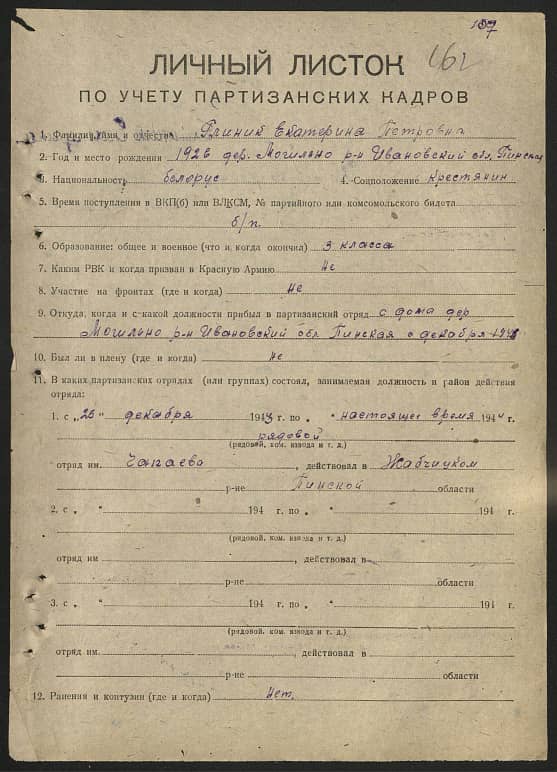 107
162
ЛИЧНЫЙ ЛИСТОК
ПО УЧЕТУ ПАРТИЗАНСКИХ КАДРОВ
1. Фамилия, имя и отчество Глиник Екатерина Петровна
2. Год и место рождения 1926 дер. Могильно р-н Ивановский обл. Пинская
3. Национальность белорус 4. Соцположение крестянин
5. Время поступления в ВКП(б) или ВЛКСМ, № партийного или комсомольского билета
б/п.
6. Образование: общее и военное (что и когда окончил) 3 класса
7. Каким РВК и когда призван в Красную Армию не
8. Участие на фронтах (где и когда) не
9. Откуда, когда и с какой должности прибыл в партизанский отряд с дома дер
Могильно р-н Ивановский обл. Пинская с декабря 1943
10. Был ли в плену (где и когда) не
11. В каких партизанских отрядах (или группах) состоял, занимаемая должность и район действия
отряда:
1. с „26" декабря 1943 г. по " настоящее время 1944 г.
рядовой
(рядовой, ком. взвода и т. д.)
отряд им. Чапаева, действовал в Жабчицком
р-не Пинской области
2. с „ " 194 г. по „ " 194 г.
(рядовой, ком. взвода и т. д.)
отряд им , действовал в
р-не области
3. с „ " 194 г. по „ " 194 г.
(рядовой, ком. взвода и т. д.)
отряд им. , действовал в
р-не области
12. Ранения и контузии (где и когда) Нет.